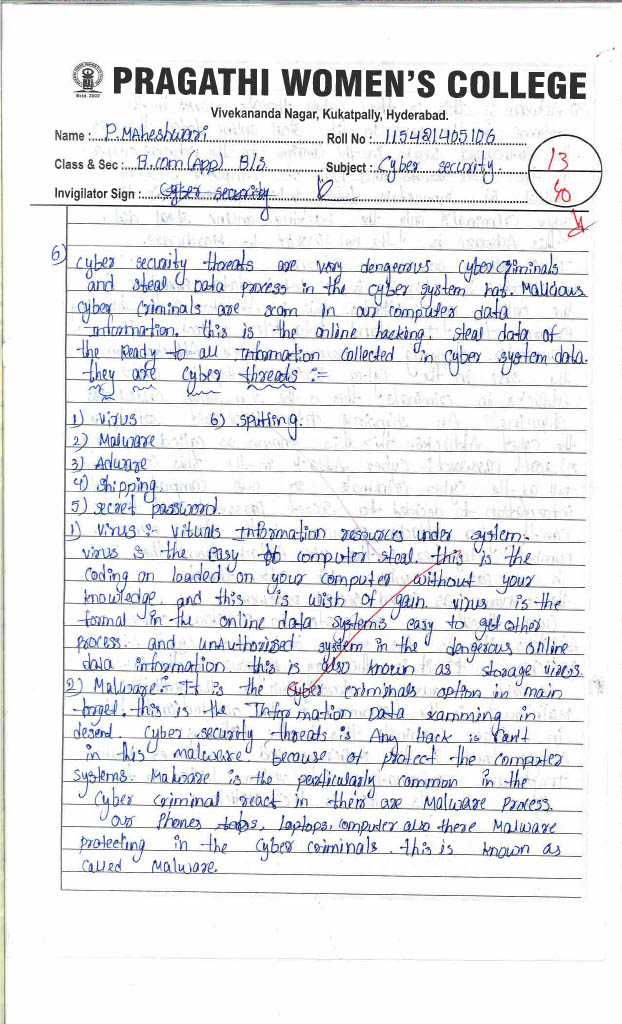 PRAGATHI WOMEN'S COLLEGE
Estd. 2002
Vivekananda Nagar, Kukatpally, Hyderabad.
Name : P. MAheshwari Roll No : 115421405106
Class & Sec : B.com (App) B/s Subject : Cyber security
Invigilator Sign : Cyber security
13
40
6) Cyber security threats are very dengerous Cyber Criminals
and steal Data process in the cyber system has. Malicious
cyber Criminals are scam in our computer data
Information. this is the online hacking. steal data of
the Ready to all Information collected in cyber system data.
they are cyber threads :=
1) Virus 6) spitting.
2) Malware
3) Adware
4) Shipping.
5) secret password.
1) Virus :- Vituals Information resources under system.
virus is the Easy to computer steal. this is the
coding on loaded on your computer without your
knowledge and this is wish of gain. virus is the
formal in the online data systems easy to get other
process. and unAuthorized system in the dengerous online
data information. this is also known as storage virus.
2) Malware :- It is the Cyber criminals option in main
forged. this is the Information Data ramming in
desend. Cyber security threats is Any hack is cant
in this malware because of protect the computer
systems. Malware is the perticularly common in the
Cyber criminal react in their are Malware Process.
our Phones tabs, laptops, computer also there Malware
protecting in the Cyber criminals. this is known as
called Malware.